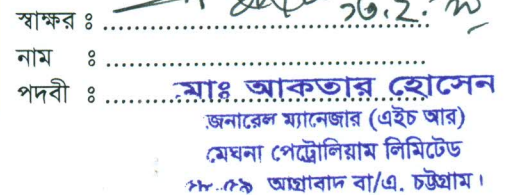 স্বাক্ষর ঃ
নাম ঃ
পদবী ঃ
মোঃ আকতার হোসেন
জেনারেল ম্যানেজার (এইচ আর)
মেঘনা পেট্রোলিয়াম লিমিটেড
আগ্রাবাদ বা/এ, চট্টগ্রাম।